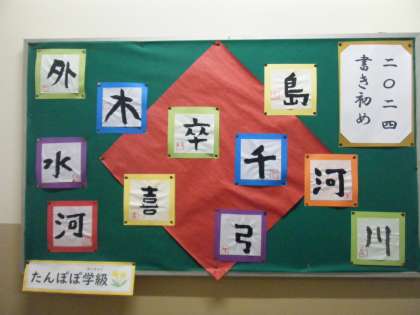 二〇二四
書き初め
外
木
卒
島
水
千
河
喜
河
弓
川
たんぽぽ学級